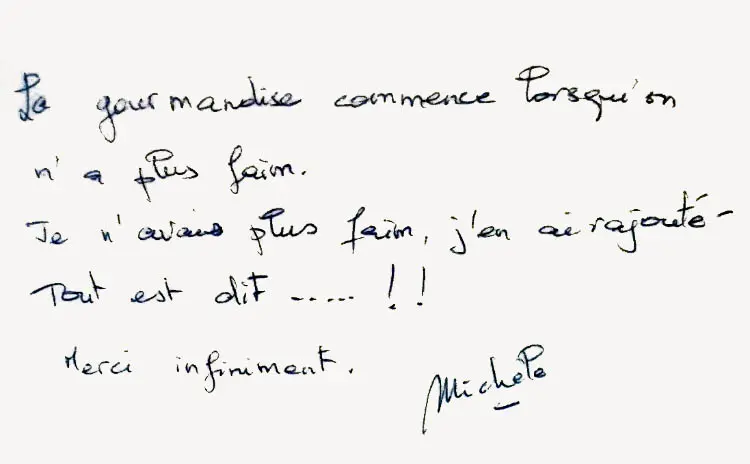 La gourmandise commence lorsqu'on
n'a plus faim.
Je n'avais plus faim, j'en ai rajouté -
Tout est dit ..... !!
Merci infiniment.
Michèle